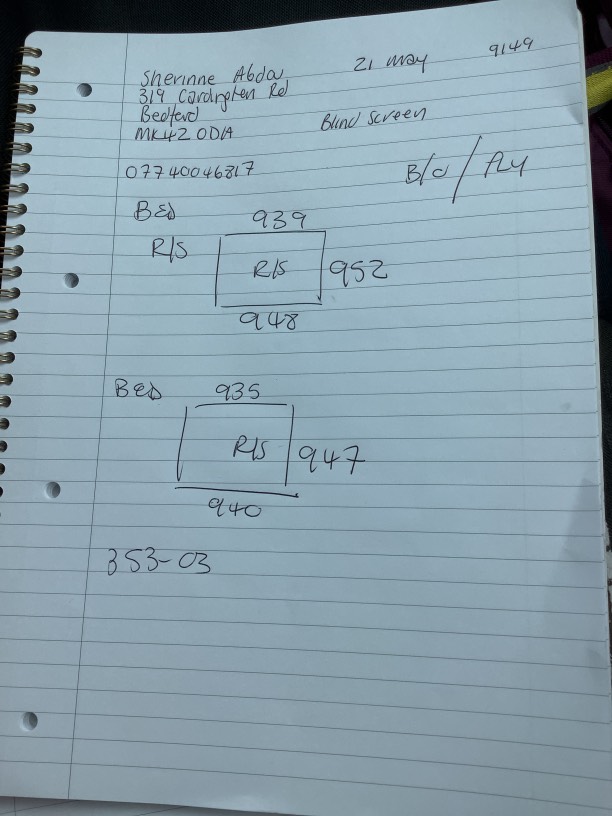 Sherinne Abdou 21 may 9149
319 Cardington Rd
Bedford Blind screen
MK42 0DA
07740046817 B/o / FLY
BED 939
R/S R/S 952
948
BED 935
R/S 947
940
353-03